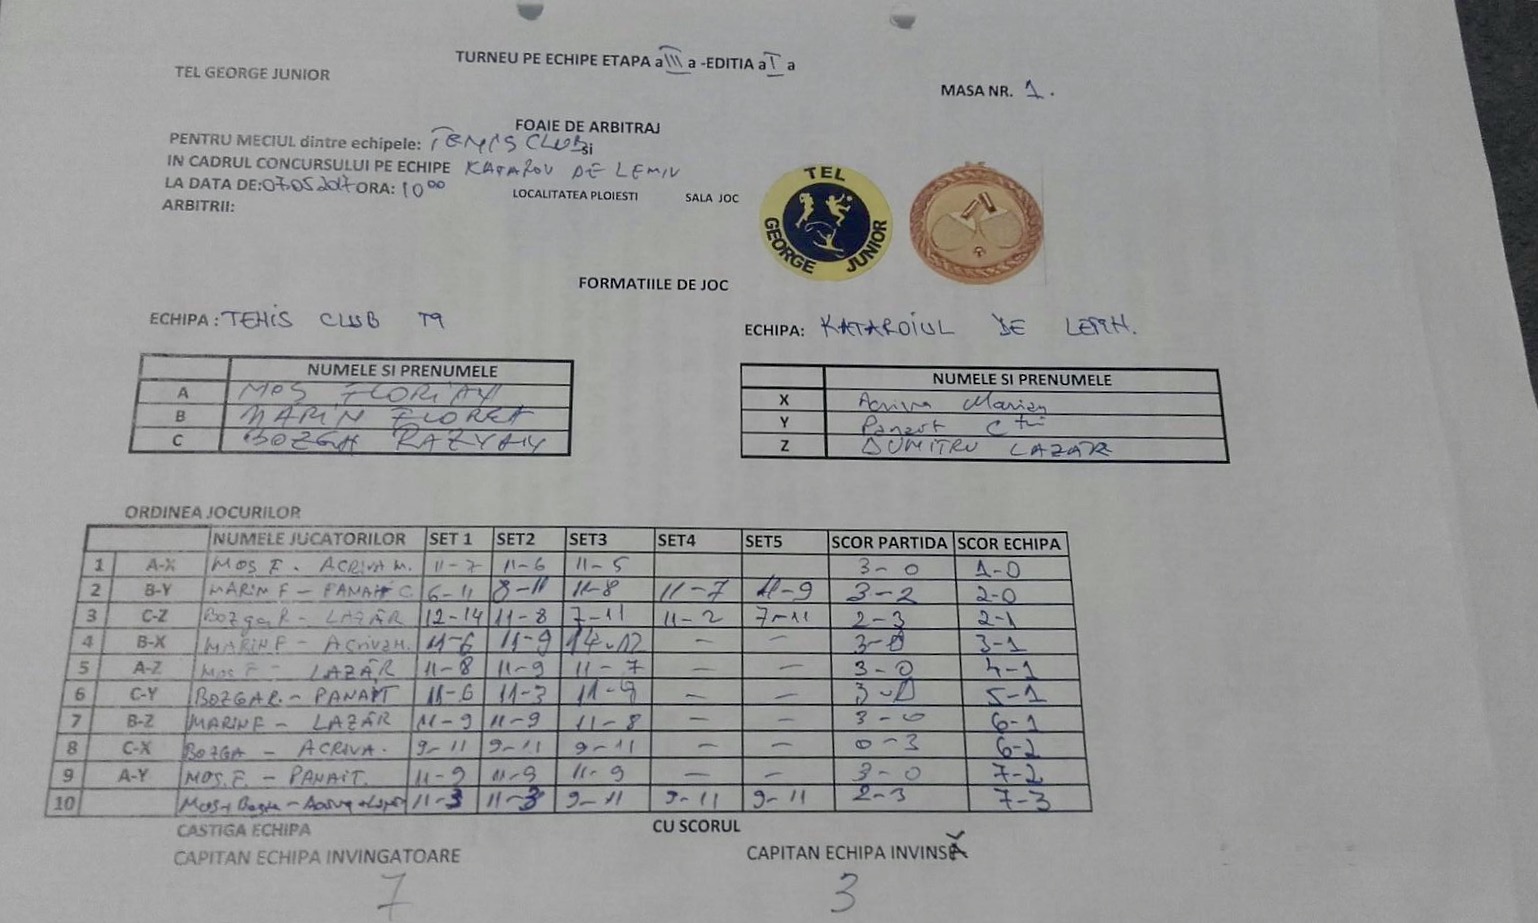 TURNEU PE ECHIPE ETAPA a III a -EDITIA a I a
TEL GEORGE JUNIOR
MASA NR. 1.
FOAIE DE ARBITRAJ
PENTRU MECIUL dintre echipele: TENIS CLUB si
IN CADRUL CONCURSULUI PE ECHIPE KATAROU DE LEMN
LA DATA DE: 07.05.2017 ORA: 10 00 LOCALITATEA PLOIESTI SALA JOC
ARBITRII:
TEL GEORGE JUNIOR
FORMATIILE DE JOC
ECHIPA: TENIS CLUB T9
ECHIPA: KATAROIUL DE LEMN.
NUMELE SI PRENUMELE
A MOS FLORIAN
B MARIN FLOREA
C BOZGA RAZVAN
NUMELE SI PRENUMELE
X Acriva Marian
Y Panait C-tin
Z DUMITRU LAZĂR
ORDINEA JOCURILOR
NUMELE JUCATORILOR SET 1 SET2 SET3 SET4 SET5 SCOR PARTIDA SCOR ECHIPA
1 A-X MOS F. ACRIVA M. 11-7 11-6 11-5 3-0 1-0
2 B-Y MARIN F - PANAIT C 6-11 8-11 11-8 11-7 11-9 3-2 2-0
3 C-Z Bozga R - LAZĂR 12-14 11-8 7-11 11-2 7-11 2-3 2-1
4 B-X MARIN F - Acriva M. 11-6 11-9 14-12 - - 3-0 3-1
5 A-Z Mos F - LAZĂR 11-8 11-9 11-7 - - 3-0 4-1
6 C-Y BOZGA R. - PANAIT 11-6 11-3 11-9 - - 3-0 5-1
7 B-Z MARIN F - LAZĂR 11-9 11-9 11-8 - - 3-0 6-1
8 C-X BOZGA - ACRIVA. 9-11 9-11 9-11 - - 0-3 6-2
9 A-Y MOS. F. - PANAIT. 11-9 11-9 11-9 - - 3-0 7-2
10 Mos+Bozga - Acriva+Lazăr 11-3 11-3 9-11 9-11 9-11 2-3 7-3
CASTIGA ECHIPA CU SCORUL
CAPITAN ECHIPA INVINGATOARE CAPITAN ECHIPA INVINSĂ
7 3